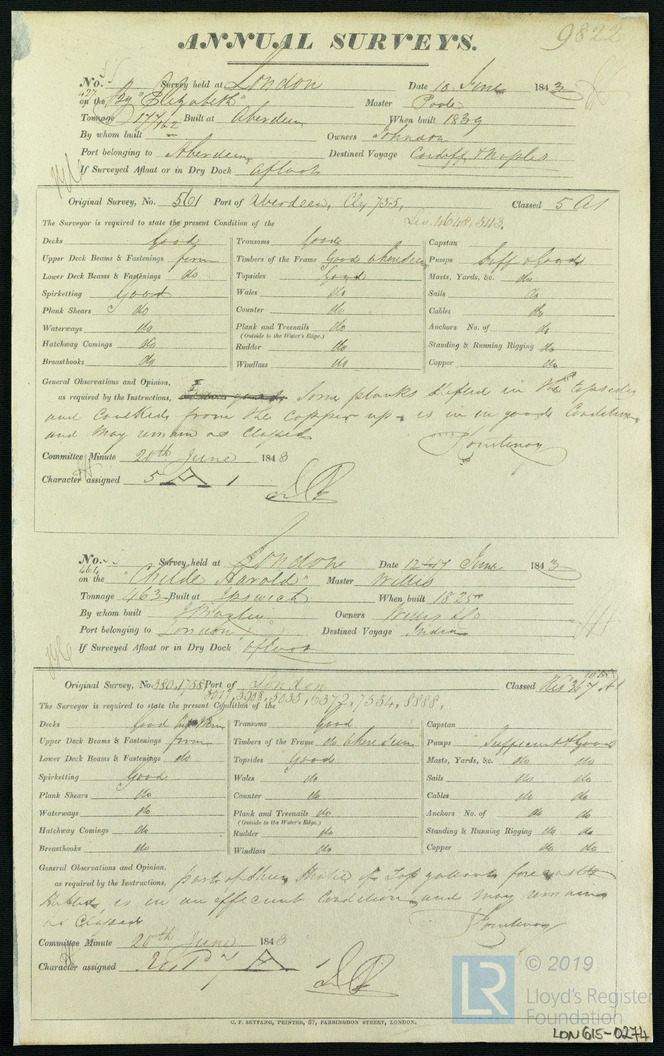 9822
ANNUAL SURVEYS.
No. Survey held at London Date 10 June 1843
427 on the Bg "Elizabeth" Master Poole
Tonnage 177 162 Built at Aberdeen When built 1839
By whom built Owners Johnson
Port belonging to Aberdeen Destined Voyage Cardiff & Naples
If Surveyed Afloat or in Dry Dock afloat
Original Survey, No. 561 Port of Aberdeen, Cly 735, Classed 5 A1
Liv. 4648, 5113
The Surveyor is required to state the present Condition of the
Decks Good Transoms Good Capstan
Upper Deck Beams & Fastenings firm Timbers of the Frame Good where seen Pumps Suff & Good
Lower Deck Beams & Fastenings do Topsides Good Masts, Yards, &c. do
Spirketting Good Wales do Sails do
Plank Shears do Counter do Cables do
Waterways do Plank and Treenails do Anchors No. of do
(Outside to the Water's Edge.)
Hatchway Comings do Rudder do Standing & Running Rigging do
Breasthooks do Windlass do Copper do
General Observations and Opinion,
as required by the Instructions, Some planks shifted in the Topsides
and caulked from the copper up. is in in good Condition
and may remain as Classed
Courtenay
Committee Minute 20th June 1843
Character assigned 5 A 1
No. Survey held at London Date 12-17 June 1843
464 on the "Childe Harold" Master Willis
Tonnage 463 Built at Ipswich When built 1825
By whom built J Bayley Owners Willis & Co
Port belonging to London Destined Voyage India
If Surveyed Afloat or in Dry Dock afloat
Original Survey, No. 380, 1758 Port of London Classed A1
5017, 5008, 5035, 6372, 7554, 8888,
The Surveyor is required to state the present Condition of the
Decks Good Transoms Good Capstan
Upper Deck Beams & Fastenings firm Timbers of the Frame do where seen Pumps Sufficient & Good
Lower Deck Beams & Fastenings do Topsides Good Masts, Yards, &c. do do
Spirketting Good Wales do Sails do do
Plank Shears do Counter do Cables do do
Waterways do Plank and Treenails do Anchors No. of do do
(Outside to the Water's Edge.)
Hatchway Comings do Rudder do Standing & Running Rigging do do
Breasthooks do Windlass do Copper do do
General Observations and Opinion,
as required by the Instructions, part of Top gallant forecastle
is in an efficient Condition and may remain
as Classed
Courtenay
Committee Minute 20th June 1843
Character assigned Rest'd 7 A
C. F. SEYFANG, PRINTER, 57, FARRINGDON STREET, LONDON.
LR © 2019
Lloyd's Register
Foundation
LON615-0274